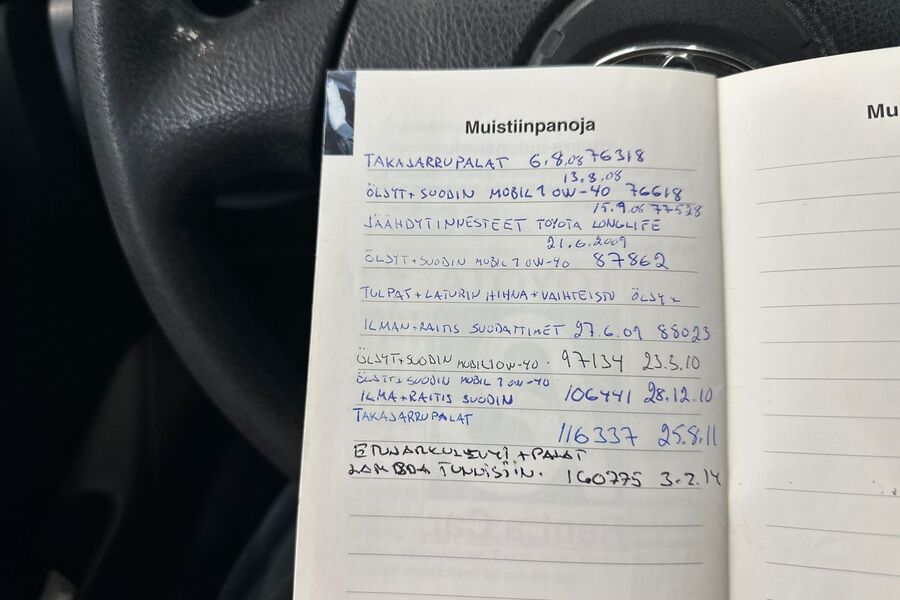 Muistiinpanoja
Mu
TAKAJARRUPALAT 6.8.08 76318
13.8.08
ÖLJYT+SUODIN MOBIL 1 0W-40 76618
15.9.08 77528
JÄÄHDYTINNESTEET TOYOTA LONGLIFE
21.6.2009
ÖLJYT+SUODIN MOBIL 1 0W-40 87862
TULPAT+LATURIN HIHNA+VAIHTEISTO ÖLJY+
ILMAN+RAITIS SUODATTIMET 27.6.09 88023
ÖLJYT+SUODIN MOBIL 1 0W-40. 97134 23.3.10
ÖLJYT+SUODIN MOBIL 1 0W-40
ILMA+RAITIS SUODIN 106441 28.12.10
TAKAJARRUPALAT
116337 25.8.11
ETUJARRULEVYT+PALAT
LAMBDA TUNNISTIN. 160775 3.2.14